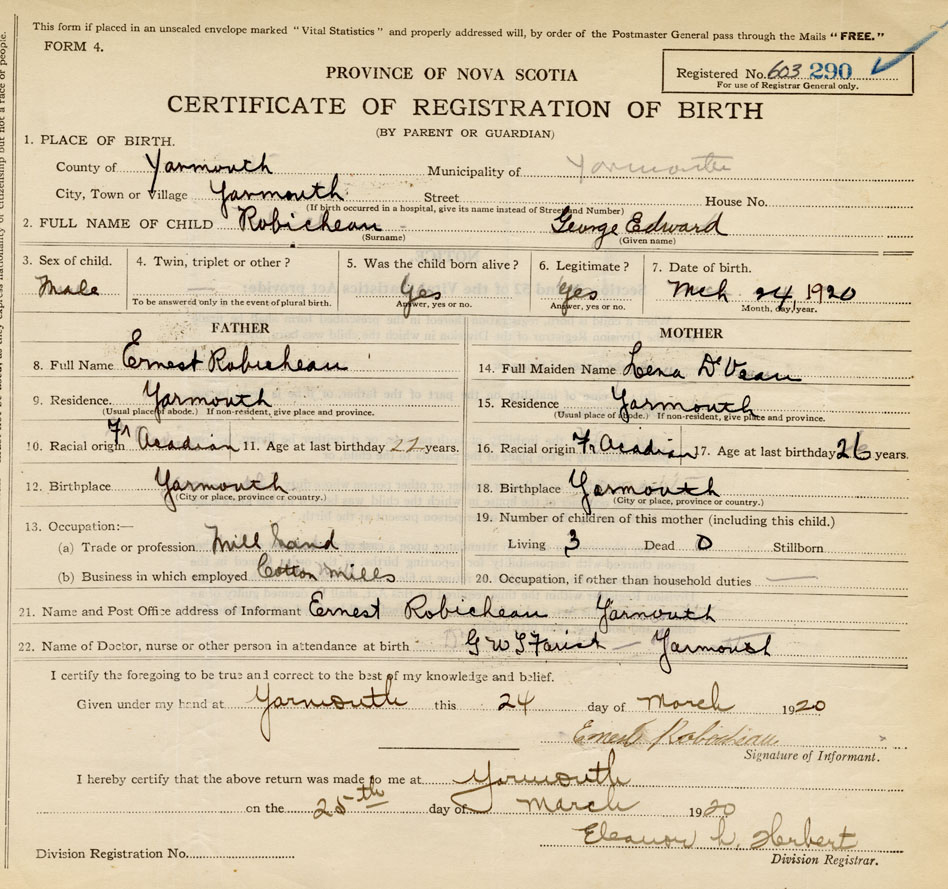 This form if placed in an unsealed envelope marked "Vital Statistics" and properly addressed will, by order of the Postmaster General pass through the Mails "FREE."
FORM 4.
Registered No. 603 290
For use of Registrar General only.
PROVINCE OF NOVA SCOTIA
CERTIFICATE OF REGISTRATION OF BIRTH
(BY PARENT OR GUARDIAN)
1. PLACE OF BIRTH.
County of Yarmouth Municipality of Yarmouth
City, Town or Village Yarmouth Street House No.
(If birth occurred in a hospital, give its name instead of Street and Number)
2. FULL NAME OF CHILD Robicheau George Edward
(Surname) (Given name)
3. Sex of child. 4. Twin, triplet or other? 5. Was the child born alive? 6. Legitimate? 7. Date of birth.
Male — Yes Yes Mch 24, 1920
To be answered only in the event of plural birth. Answer, yes or no. Answer, yes or no. Month, day, year.
FATHER MOTHER
8. Full Name Ernest Robicheau
9. Residence. Yarmouth
(Usual place of abode.) If non-resident, give place and province.
10. Racial origin Fr Acadian 11. Age at last birthday 27 years.
12. Birthplace Yarmouth
(City or place, province or country.)
13. Occupation:—
(a) Trade or profession Mill hand
(b) Business in which employed Cotton Mills
14. Full Maiden Name Lena D'Veau
15. Residence Yarmouth
(Usual place of abode.) If non-resident, give place and province.
16. Racial origin Fr Acadian 17. Age at last birthday 26 years.
18. Birthplace Yarmouth
(City or place, province or country.)
19. Number of children of this mother (including this child.)
Living 3 Dead 0 Stillborn
20. Occupation, if other than household duties —
21. Name and Post Office address of Informant Ernest Robicheau Yarmouth
22. Name of Doctor, nurse or other person in attendance at birth G W T Farish — Yarmouth
I certify the foregoing to be true and correct to the best of my knowledge and belief.
Given under my hand at Yarmouth this 24 day of March 1920
Ernest Robicheau
Signature of Informant.
I hereby certify that the above return was made to me at Yarmouth
on the 25th day of March 1920
Eleanor L. Herbert
Division Registrar.
Division Registration No.